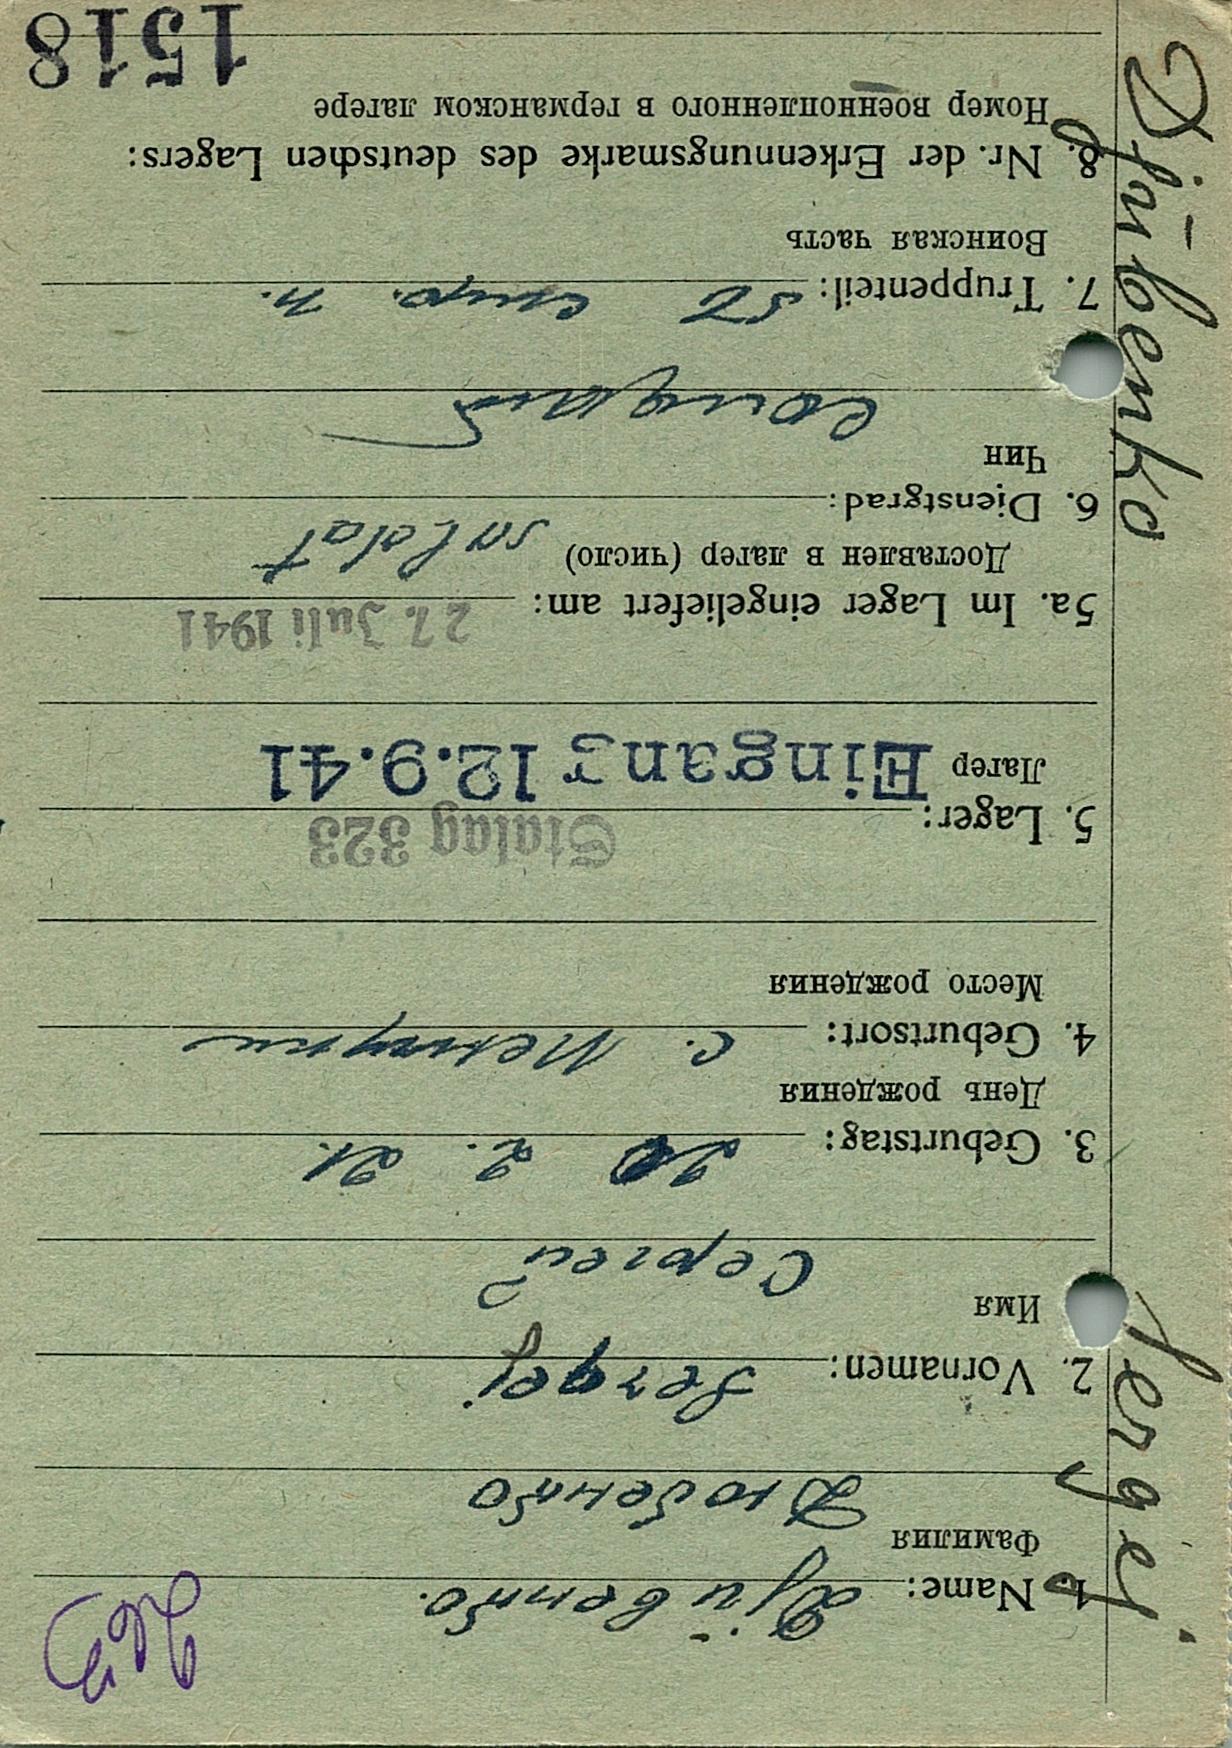 Djūbenko Sergej
1. Name: Djūbenko.
Фамилия
Дюбенко
2. Vornamen: Sergej
Имя
Сергей
3. Geburtstag: 2. 21.
День рождения
4. Geburtsort: с.
Место рождения
Stalag 323
5. Lager:
Лагер Eingang 12.9.41
27. Juli 1941
5a. Im Lager eingeliefert am:
Доставлен в лагер (число)
soldat
6. Dienstgrad:
Чин
солдат
7. Truppenteil: стр. п.
Воинская часть
8. Nr. der Erkennungsmarke des deutschen Lagers:
Номер военнопленного в германском лагере
1518